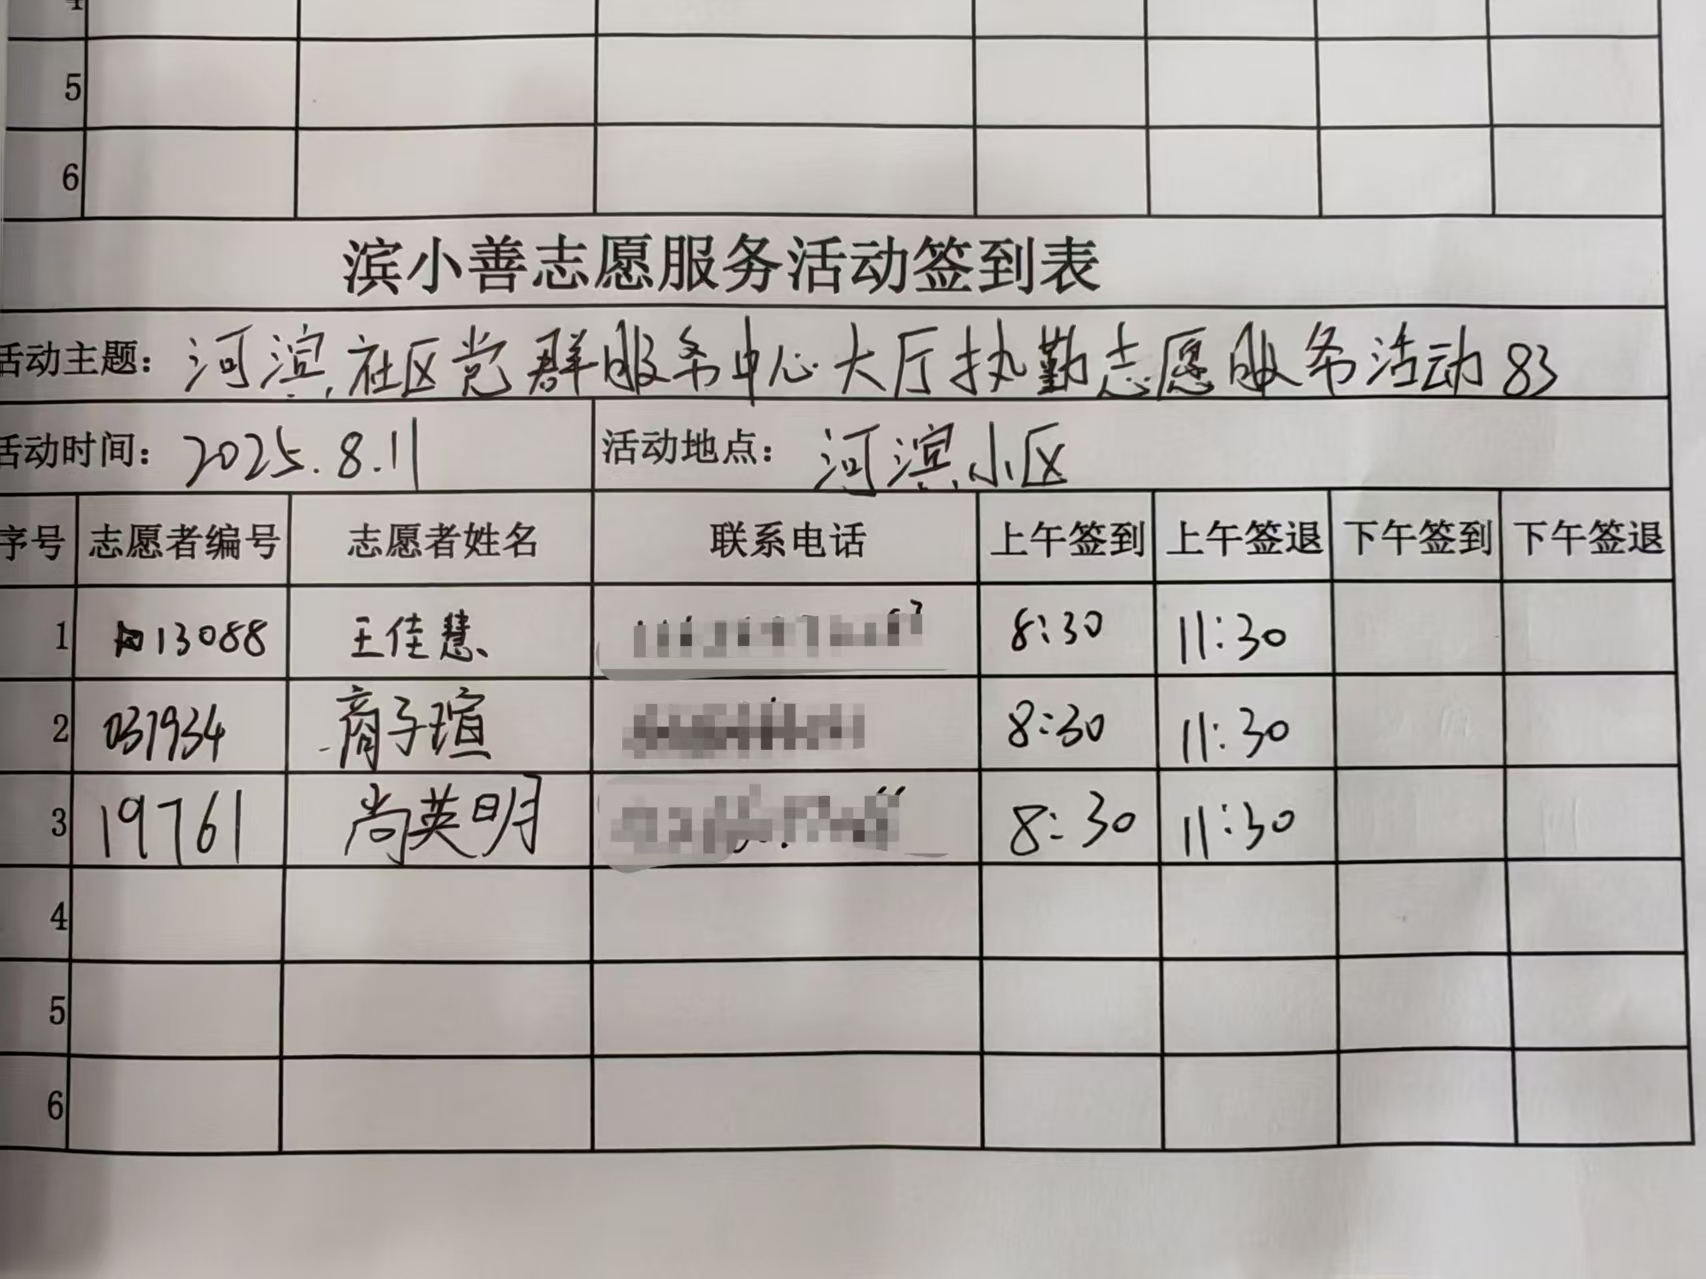 4
5
6
滨小善志愿服务活动签到表
活动主题: 河滨社区党群服务中心大厅执勤志愿服务活动83
活动时间: 2025.8.11 活动地点: 河滨小区
序号 志愿者编号 志愿者姓名 联系电话 上午签到 上午签退 下午签到 下午签退
1 13088 王佳慧 8:30 11:30
2 031934 商子瑄 8:30 11:30
3 19761 尚英明 8:30 11:30
4
5
6